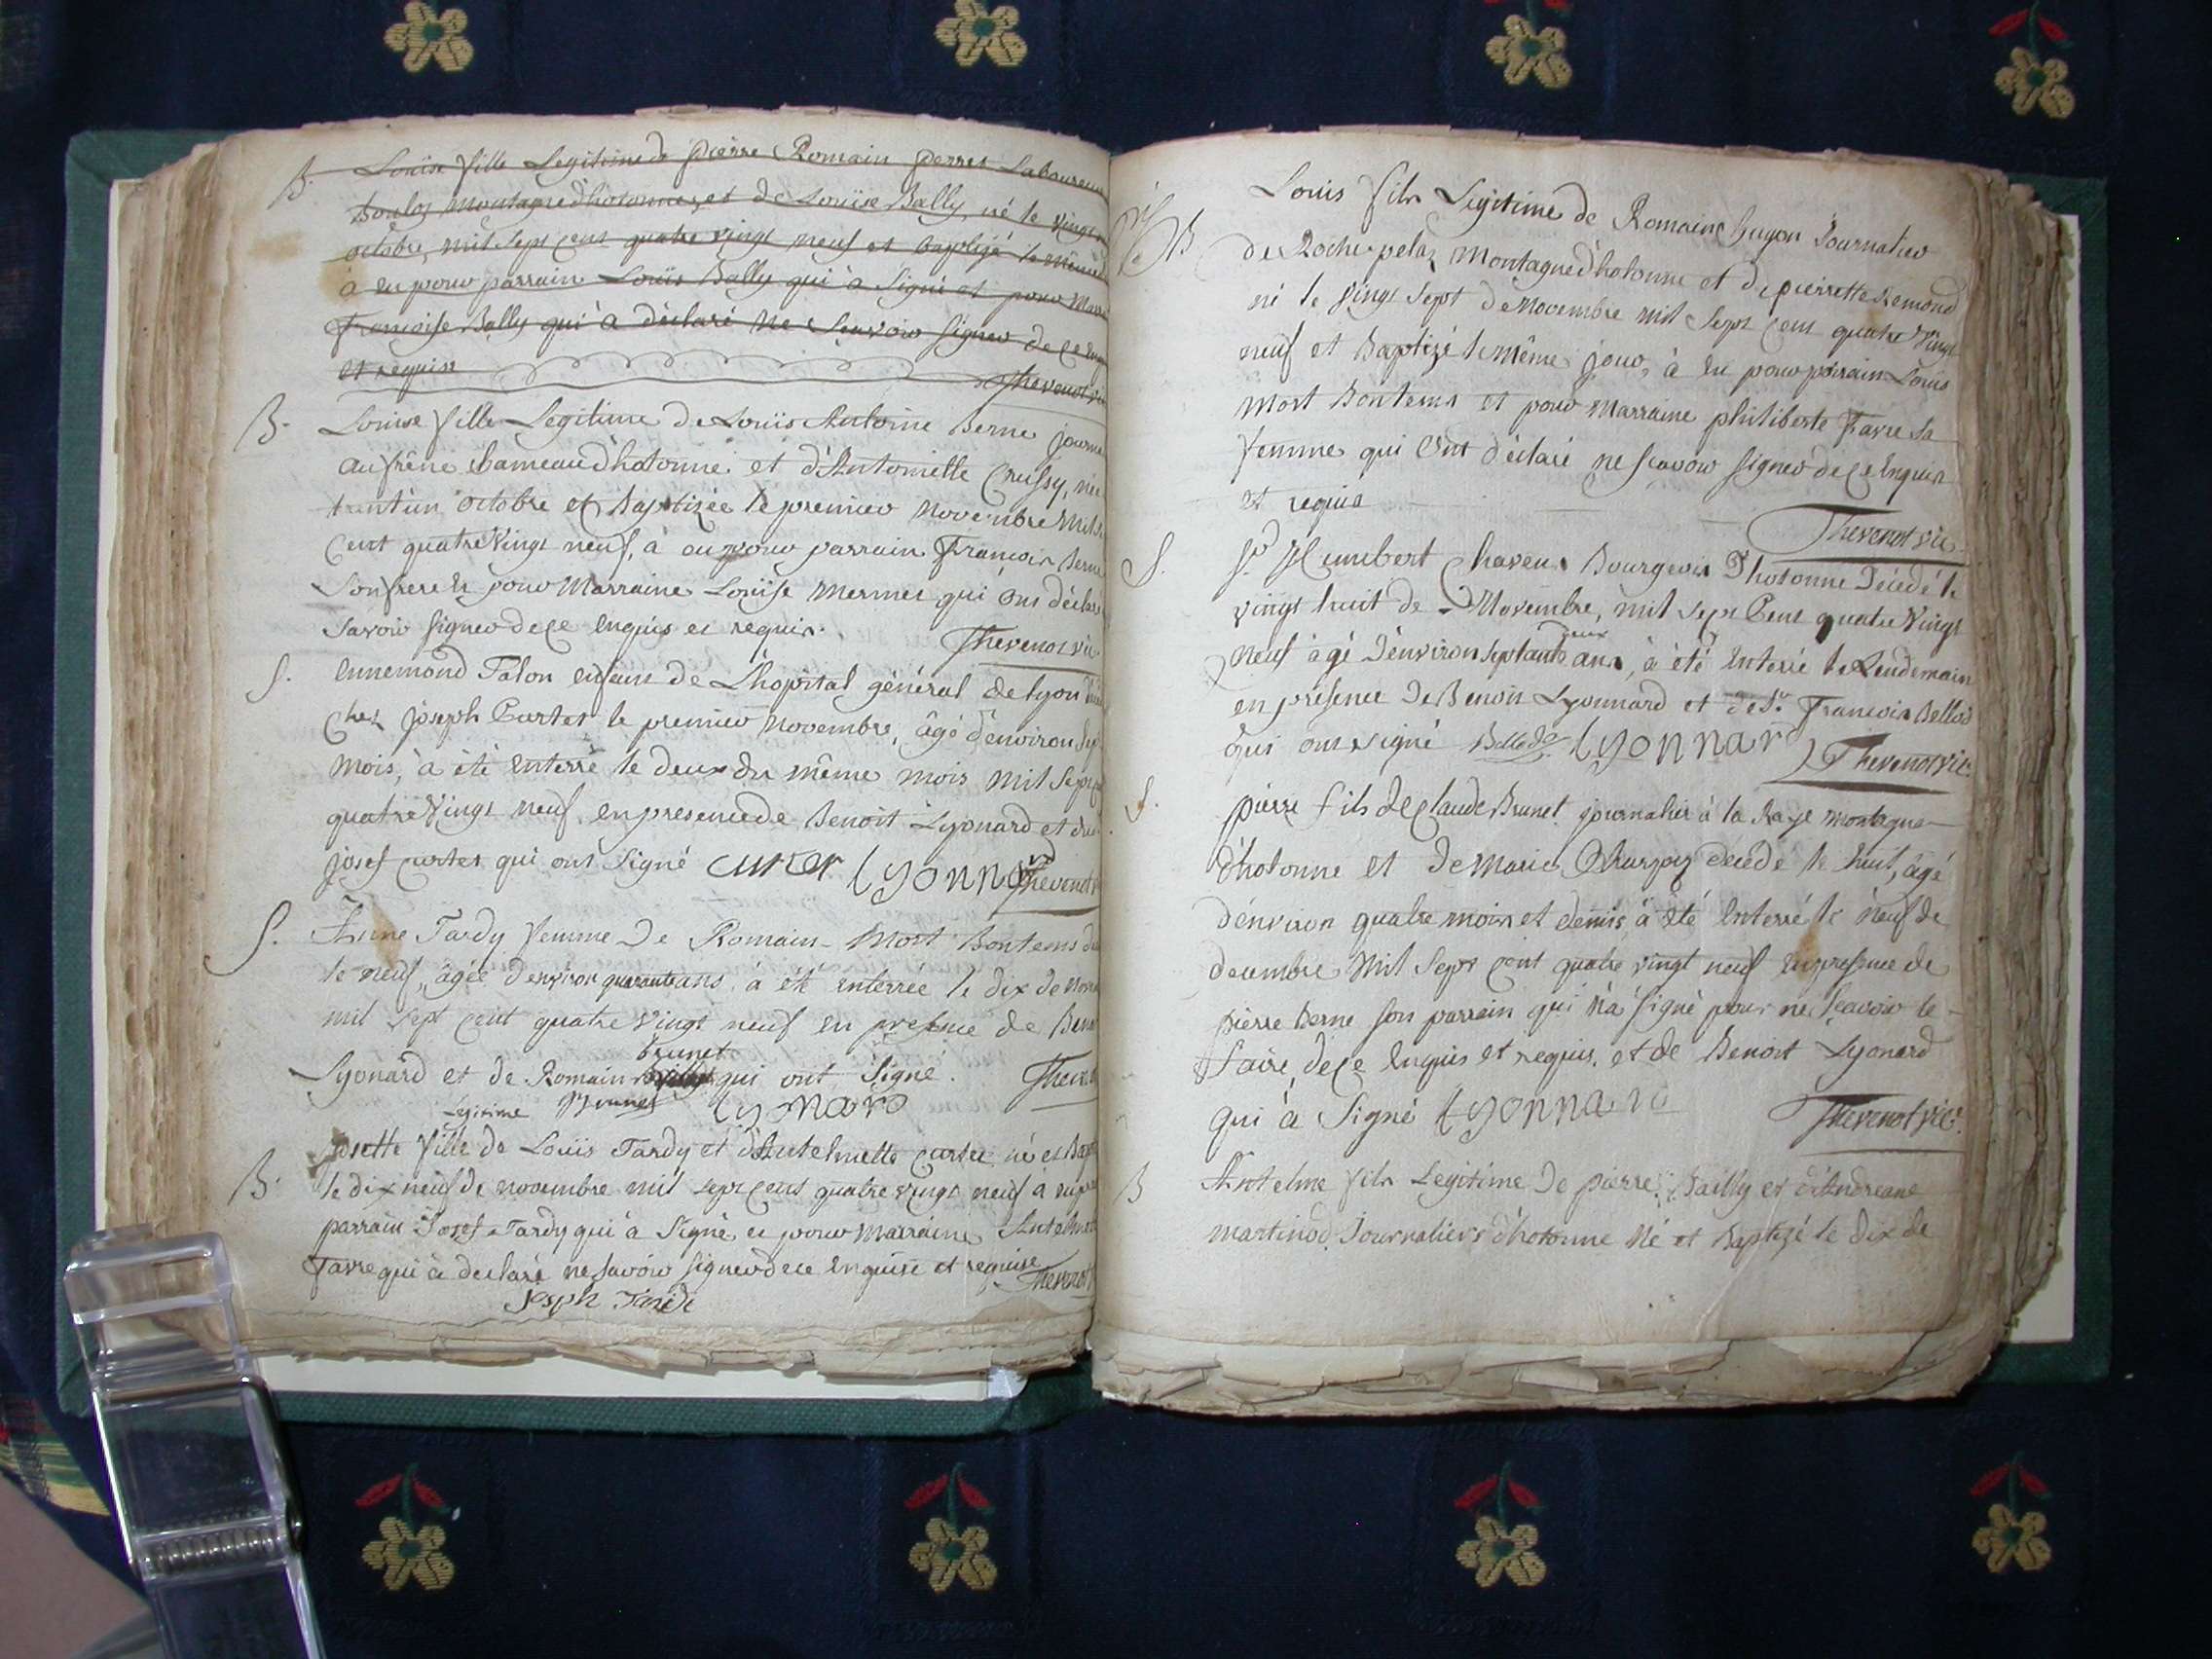 B. Louïse fille Legitime de pierre Romain perret Laboureur
montagne d'hotonne, et de Louïse Bally, né le vingt
octobre, mil sept cent quatre vingt neuf et Baptizé le même
à eu pour parrain Louïs Bally qui à Signé et pour Marr
Françoise Bally qui à déclaré ne Sçavoir signer de ce enq
et requise
Thevenot vic
B. Louïse fille Legitime de Loüis Antoine Berne journ
hameau d'hotonne et d'Antoinette Crussy, née
trent'un octobre et Baptizée le premier Novembre mil s
Cent quatre Vingt neuf, à eu pour parrain François Berne
Son frere et pour Marraine Louïse Mermet qui ont déclaré
Savoir signer de ce enquis et requis.
Thevenot vic
S. Ennemond Talon enfant de L'hopital général de lyon
chez joseph Curtet le premier Novembre, âgé d'environ
mois, à été enterré le deux du même mois mil Sept c
quatre Vingt neuf en presence de Benoit Lyonard et du
josef curtet qui ont Signé curtet lyonnard
Thevenot
S. Anne Tardy femme De Romain Mort Bontems
le neuf, âgée d'environ quarante ans, à été enterrée le dix de nov
mil Sept cent quatre Vingt neuf en presence de Beno
Brunet
Lyonard et de Romain qui ont Signé.
Theven
Legitime Brunet lyonard
B. josette fille de Louïs Tardy et d'Antelmette curtet né et Bap
le dix neuf de novembre mil sept cent quatre vingt neuf à eu pour
parrain Josef Tardy qui à Signé et pour Marraine Antelmet
Favre qui à declaré ne Savoir signer de ce enquise et requise
Thevenot
Joseph Tardi
Louïs fils Legitime de Romain Guyon Journalier
B de Roche pelaz Montagne d'hotonne et de pierrette Remond
né le vingt Sept de Novembre mil Sept cent quatre Vingt
neuf et Baptizé le même jour, à eu pour parrain Louïs
Mort Bontems et pour Marraine philiberte Favre Sa
femme qui Ont déclaré ne sçavoir signer de ce enquis
et requis
Thevenot vic
S. Sr. Humbert Chaven Bourgeois D'hotonne Décedé le
vingt huit de Novembre, mil sept Cent quatre Vingt
deux
Neuf âgé D'environ septante ans, à été enterré le Lendemain
en présence De Benoit Lyonnard et de Sr. François Bellod
qui ont signé Bellod lyonnard
Thevenot vic.
S. pierre fils De Claude Brunet journalier à la Raye montagne
d'hotonne et De Marie decédé le huit, âgé
d'environ quatre mois et demis, à été enterré le neuf de
decembre Mil Sept cent quatre vingt neuf en presence de
pierre Berne son parrain qui n'a signé pour ne Sçavoir le
faire, de ce enquis et requis, et de Benoit Lyonard
qui à Signé lyonnard
Thevenot vic.
B Antelme fils Legitime De pierre Bailly et d'Andreane
martinod Journaliers d'hotonne Né et Baptizé le Dix de